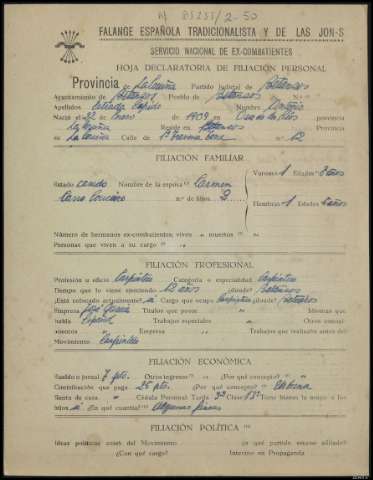 A 85255/2-50
FALANGE ESPAÑOLA TRADICIONALISTA Y DE LAS JON-S
SERVICIO NACIONAL DE EX-COMBATIENTES
HOJA DECLARATORIA DE FILIACIÓN PERSONAL
Provincia de La Coruña Partido Judicial de Betanzos
Ayuntamiento de Betanzos Pueblo de Betanzos
Apellidos Estrada Nombre Antonio
Nació el 22 Enero de 1909 en provincia
La Coruña Reside en Betanzos Provincia
de La Coruña Calle de n.º 62
FILIACIÓN FAMILIAR
Varones 1 Edades 3 años
Estado casado Nombre de la esposa Carmen
n.º de hijos 2 Hembras 1 Edades años
Número de hermanos ex-combatientes: vivos " muertos "
Personas que viven a su cargo "
FILIACIÓN PROFESIONAL
Profesión u oficio Carpintero Categoría o especialidad Carpintero
Tiempo que lo viene ejerciendo 12 años ¿dónde? Betanzos
¿Está colocado actualmente? si Cargo que ocupa Carpintero ¿dónde? Betanzos
Empresa José García Idiomas que posee " Idiomas que
habla Español Trabajos especiales " Trabajos que
Empresa " Trabajos que realizaba antes del
Movimiento Carpintero
FILIACIÓN ECONÓMICA
Sueldo o jornal 7 pts. Otros ingresos " ¿Por qué concepto? "
Contribución que paga 25 pts. ¿Por qué concepto? Urbana
Renta de casa " Cédula Personal Tarifa 3ª Clase 13ª Tiene bienes la mujer o los
hijos si ¿En qué cuantía? Algunas fincas
FILIACIÓN POLÍTICA
Ideas políticas antes del Movimiento en qué partido estuvo afiliado?
¿Con qué cargo? Intervino en Propaganda